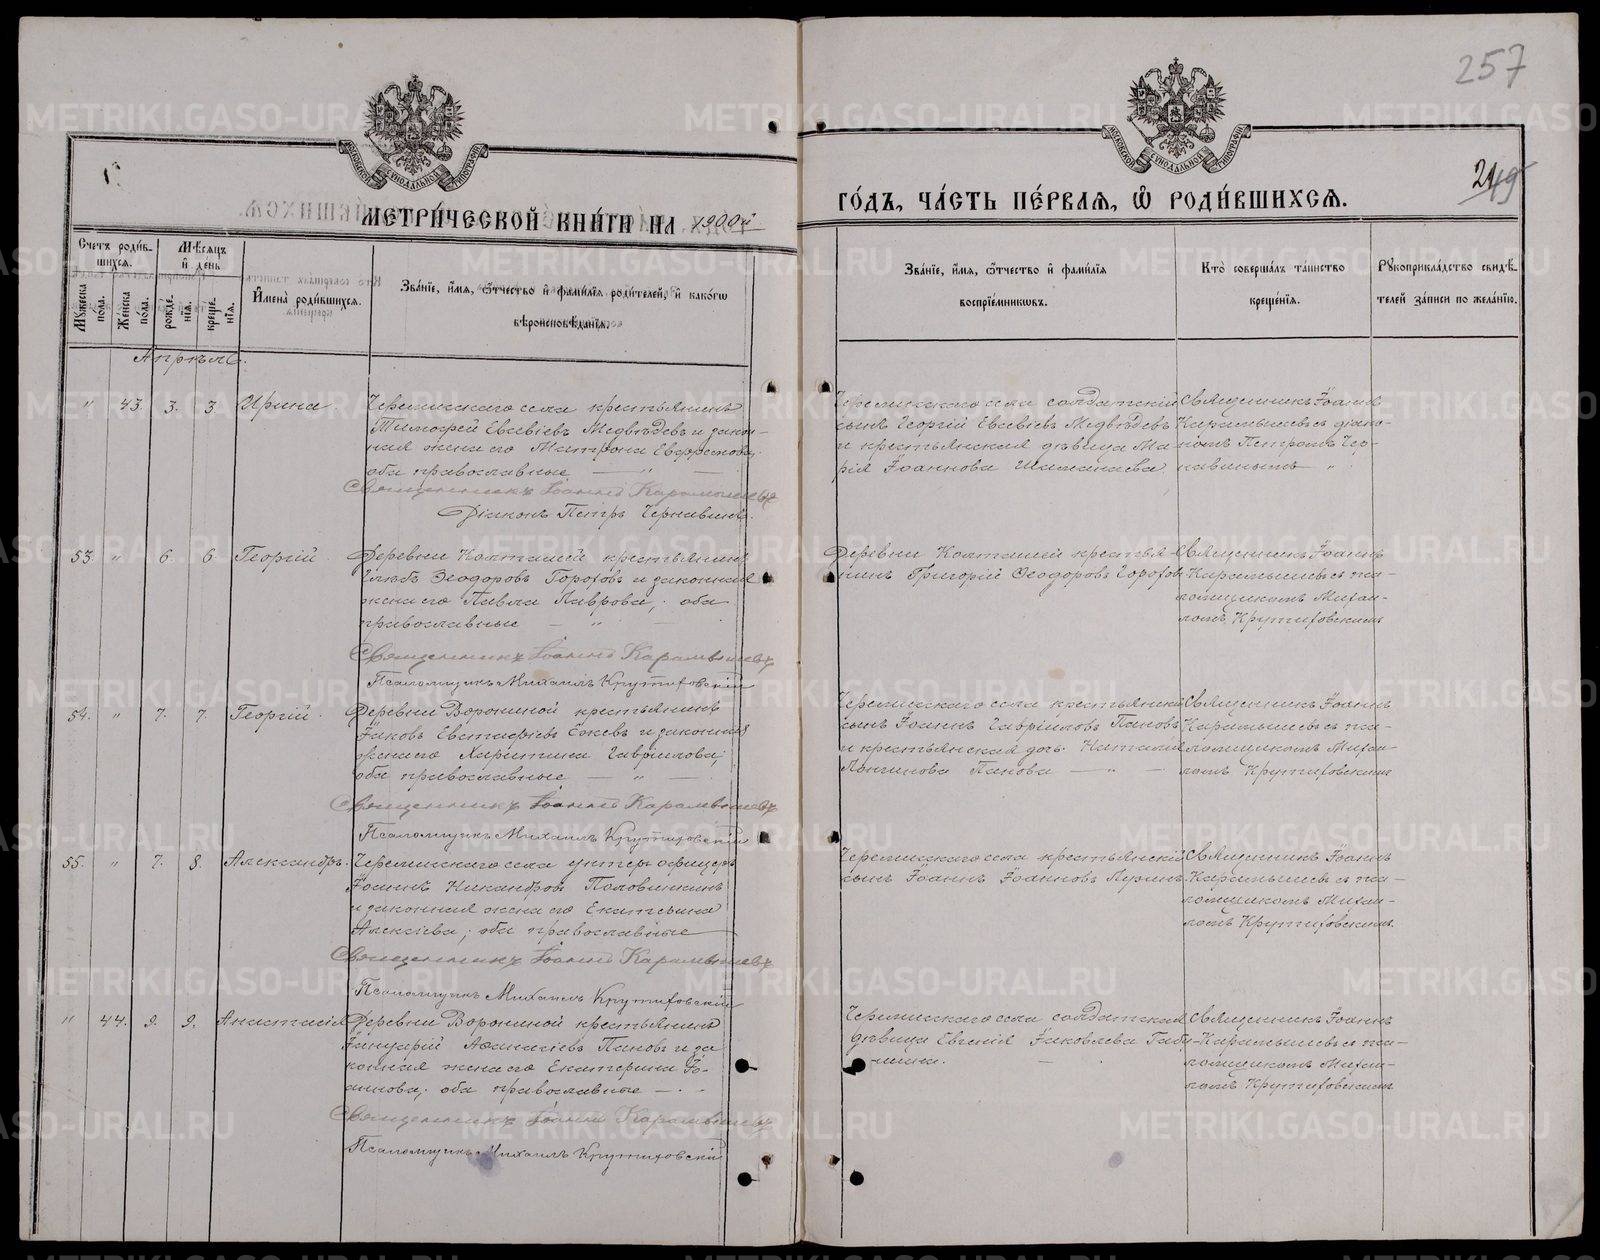 257
249
МЕТРИ́ЧЕСКОЙ КНИ́ГИ НА 1900й
ГО́ДЪ, ЧА́СТЬ ПЕ́РВАѦ, Ѡ҆ РОДИ́ВШИХСѦ.
Счетъ роди́вшихсѧ.
Мꙋ́жеска пола̀.
Же́нска пола̀.
Мѣ́сѧцъ и҆ де́нь
рожде́нїѧ.
креще́нїѧ.
И҆мена̀ роди́вшихсѧ.
Зва́нїе, и҆́мѧ, ѻ҆́тчество и҆ фами́лїѧ роди́телей, и҆ како́гѡ
вѣроисповѣ́данїѧ.
Зва́нїе, и҆́мѧ, ѻ҆́тчество и҆ фами́лїѧ
воспрїе́мникѡвъ.
Кто̀ соверша́лъ та́инство
креще́нїѧ.
Рꙋкоприкла́дство свидѣ́телей за́писи по жела́нїю.
Апрѣль
" 43. 3. 3 Ирина.
Черемисскаго села крестьянинъ
Тимофей Евсевіевъ Медвѣдевъ и закон-
ная жена его Матрона Ефремова,
оба православные — " —
Священникъ Іоаннъ Карамышевъ
Діаконъ Петръ Чернавинъ.
Черемисскаго села солдатскій
сынъ Георгій Евсевіевъ Медвѣдевъ
и крестьянская дѣвица Ма-
рія Іоаннова Шаманаева
Священникъ Іоаннъ
Карамышевъ съ діако-
номъ Петромъ Чер-
навинымъ "
53. " 6. 6. Георгій.
Деревни Колташей крестьянинъ
Глѣбъ Ѳеодоровъ Гороховъ и законная
жена его Павла Лаврова, оба
православные — " —
Священникъ Іоаннъ Карамышевъ
Псаломщикъ Михаилъ Крутиховскій
Деревни Колташей крестья-
нинъ Григорій Ѳеодоровъ Гороховъ
Священникъ Іоаннъ
Карамышевъ съ пса-
ломщикомъ Михаи-
ломъ Крутиховскимъ
54. " 7. 7. Георгій.
Деревни Ворониной крестьянинъ
Іаковъ Евстафіевъ Ежевъ и законная
жена его Харитина Гавріилова,
оба православные — " —
Священникъ Іоаннъ Карамышевъ
Псаломщикъ Михаилъ Крутиховскій
Черемисскаго села крестьянскій
сынъ Іоаннъ Гавріиловъ Пановъ
и крестьянская дочь Наталія
Лонгинова Панова — " —
Священникъ Іоаннъ
Карамышевъ съ пса-
ломщикомъ Михаи-
ломъ Крутиховскимъ
55. " 7. 8. Александръ.
Черемисскаго села унтеръ офицеръ
Іоаннъ Никандровъ Половинкинъ
и законная жена его Екатерина
Алексіева, оба православные —
Священникъ Іоаннъ Карамышевъ
Псаломщикъ Михаилъ Крутиховскій
Черемисскаго села крестьянскій
сынъ Іоаннъ Іоанновъ
Священникъ Іоаннъ
Карамышевъ съ пса-
ломщикомъ Михаи-
ломъ Крутиховскимъ.
" 44. 9. 9. Анастасія
Деревни Ворониной крестьянинъ
Іануарій Аѳанасіевъ Пановъ и за
конная жена его Екатерина Іо-
аннова, оба православные —
Священникъ Іоаннъ Карамышевъ
Псаломщикъ Михаилъ Крутиховскій
Черемисскаго села солдатская
дѣвица Евгенія Іаковлева
Священникъ Іоаннъ
Карамышевъ съ пса-
ломщикомъ Михаи-
ломъ Крутиховскимъ